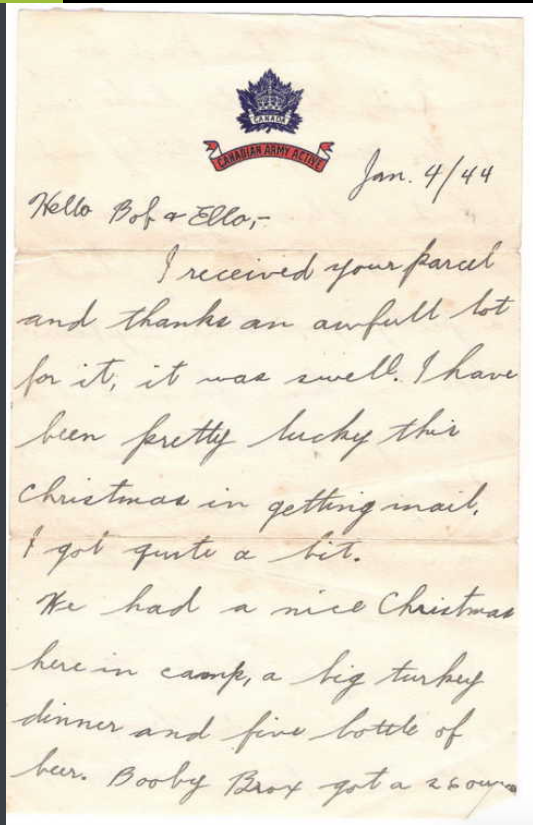 CANADA
CANADIAN ARMY ACTIVE
Jan. 4/44
Hello Bob & Ella,-
I received your parcel
and thanks an awfull lot
for it, it was swell. I have
been pretty lucky this
Christmas in getting mail,
I got quite a bit.
We had a nice Christmas
here in camp, a big turkey
dinner and five bottle of
beer. Booby Brox got a 26 ounce